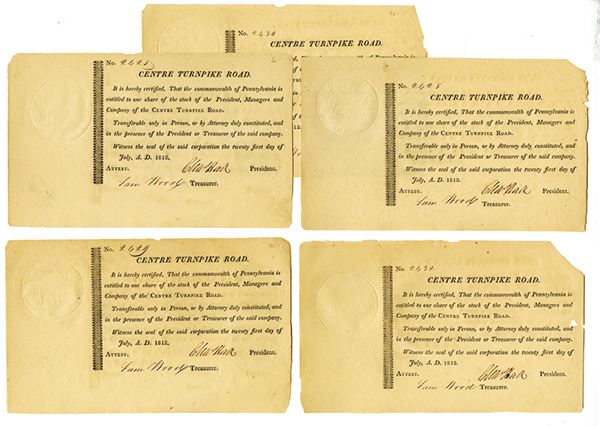 No.
CENTRE TURNPIKE ROAD.
of Pennsylvania is
No. 2425
CENTRE TURNPIKE ROAD.
It is hereby certified, That the commonwealth of Pennsylvania is
entitled to one share of the stock of the President, Managers and
Company of the CENTRE TURNPIKE ROAD.
Transferable only in Person, or by Attorney duly constituted, and
in the presence of the President or Treasurer of the said company.
Witness the seal of said corporation the twenty first day of
July, A. D. 1812.
ATTEST. President.
Sam Wood Treasurer.
No. 2428
CENTRE TURNPIKE ROAD.
It is hereby certified, That the commonwealth of Pennsylvania is
entitled to one share of the stock of the President, Managers and
Company of the CENTRE TURNPIKE ROAD.
Transferable only in Person, or by Attorney duly constituted, and
in the presence of the President or Treasurer of the said company.
Witness the seal of said corporation the twenty first day of
July, A. D. 1812.
ATTEST. President.
Sam Wood Treasurer.
No. 2429
CENTRE TURNPIKE ROAD.
It is hereby certified, That the commonwealth of Pennsylvania is
entitled to one share of the stock of the President, Managers and
Company of the CENTRE TURNPIKE ROAD.
Transferable only in Person, or by Attorney duly constituted, and
in the presence of the President or Treasurer of the said company.
Witness the seal of said corporation the twenty first day of
July, A. D. 1812.
ATTEST. President.
Sam Wood Treasurer.
No.
CENTRE TURNPIKE ROAD.
It is hereby certified, That the commonwealth of Pennsylvania is
entitled to one share of the stock of the President, Managers and
Company of the CENTRE TURNPIKE ROAD.
Transferable only in Person, or by Attorney duly constituted, and
in the presence of the President or Treasurer of the said company.
Witness the seal of said corporation the twenty first day of
July, A. D. 1812.
ATTEST. President.
Sam Wood Treasurer.